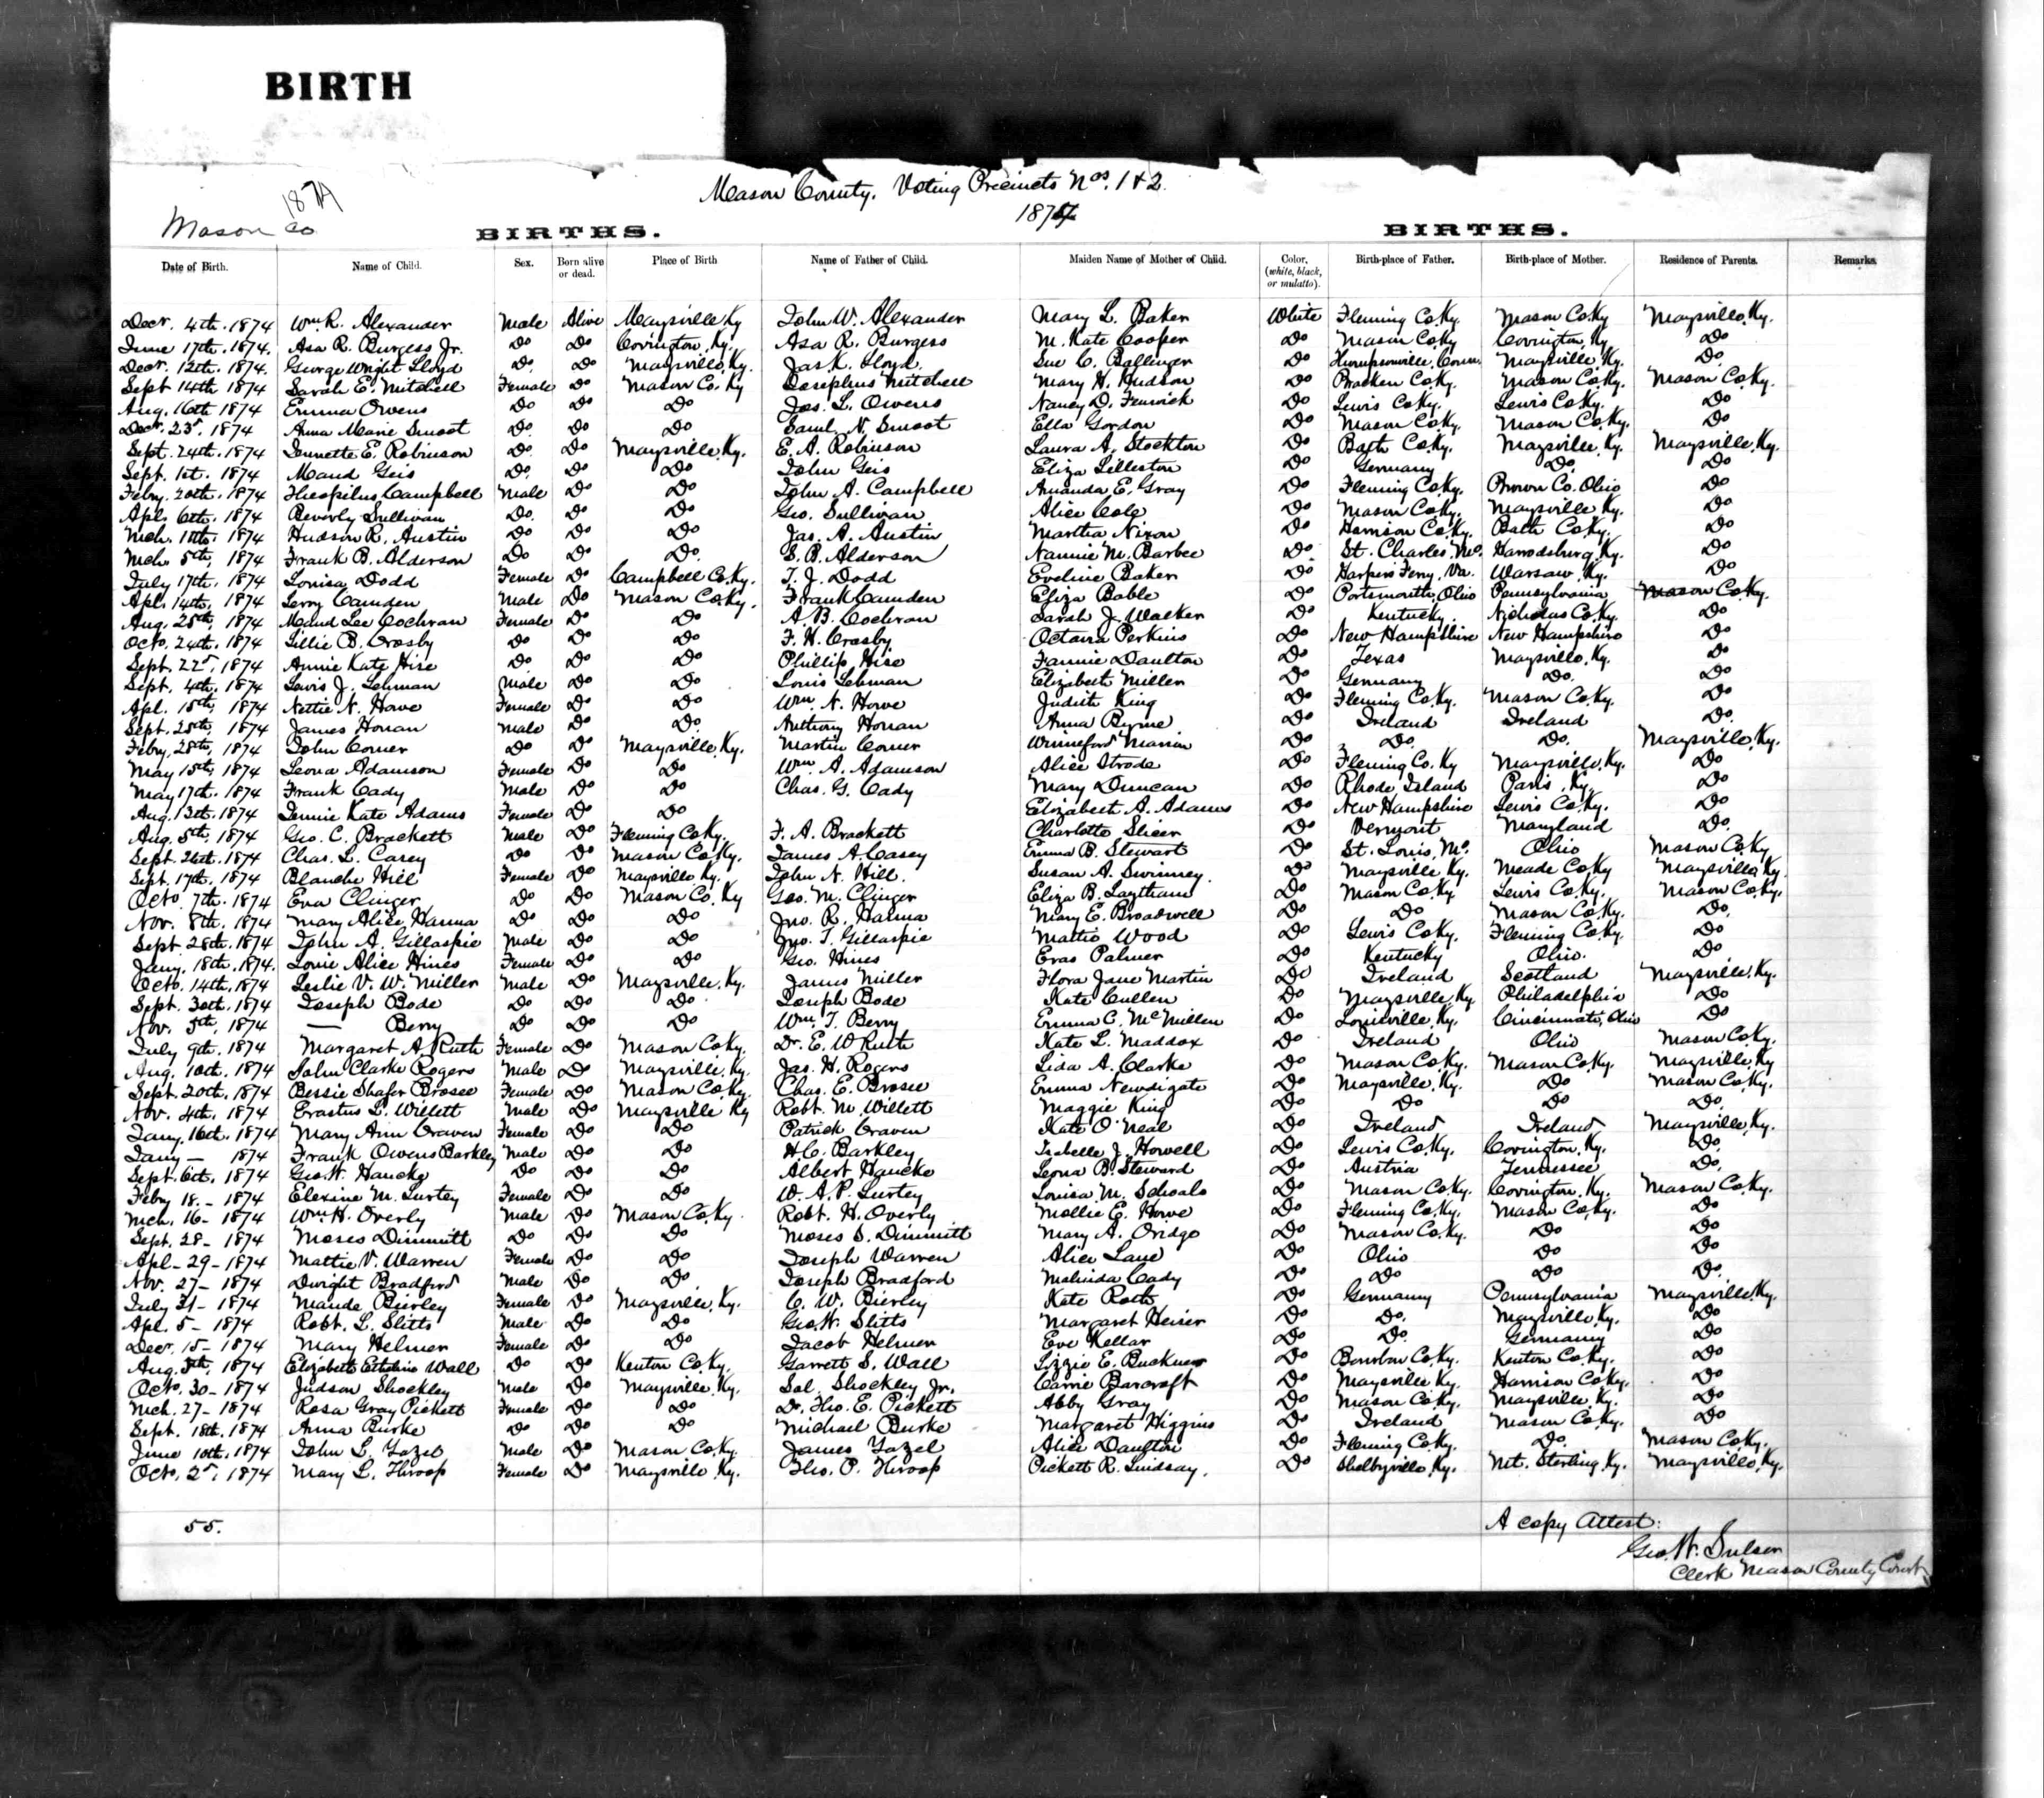 BIRTH
1874
Mason Co
Mason County. Voting Precincts Nos. 1 & 2.
1874
BIRTHS. BIRTHS.
Date of Birth. Name of Child. Sex. Born alive or dead. Place of Birth Name of Father of Child. Maiden Name of Mother of Child. Color, (white, black, or mulatto). Birth-place of Father. Birth-place of Mother. Residence of Parents. Remarks
Decr. 4th. 1874 Wm. R. Alexander Male Alive Maysville Ky John W. Alexander Mary L. Baker White Fleming Co. Ky. Mason Co. Ky Maysville, Ky.
June 17th. 1874. Asa R. Burgess Jr. Do Do Covington, Ky. Asa R. Burgess M. Kate Cooper Do Mason Co. Ky Covington, Ky Do
Decr. 12th. 1874. George Wright Lloyd Do. Do Maysville, Ky. Jas. K. Lloyd. Sue C. Ballenger Do Conn. Maysville, Ky. Do.
Sept 14th 1874 Sarah E. Mitchell Female Do Mason Co. Ky Josephus Mitchell Mary H. Hudson Do Bracken Co. Ky. Mason Co. Ky. Mason Co. Ky.
Aug. 16th 1874 Emma Owens Do Do Do Jas. L. Owens Nancy D. Fenwick Do Lewis Co. Ky. Lewis Co. Ky. Do
Decr. 23d. 1874 Anna Marie Smoot Do. Do Do Saml. N. Smoot Ella Gordon Do Mason Co. Ky. Mason Co. Ky. Do
Sept. 24th. 1874 Jennette E. Robinson Do. Do Maysville, Ky. E. A. Robinson Laura A. Stockton Do Bath Co. Ky. Maysville, Ky. Maysville, Ky.
Sept. 1st. 1874 Maud Geis Do. Do Do John Geis Eliza Lilleston Do Germany Do. Do
Febry. 20th. 1874 Theopilus Campbell Male Do Do John A. Campbell Amanda E. Gray Do Fleming Co. Ky. Brown Co. Ohio Do
Apl. 6th. 1874 Beverly Sullivan Do. Do Do Geo. Sullivan Alice Cole Do Mason Co. Ky. Maysville Ky. Do
Mch. 1874 Hudson R. Austin Do Do Do Jas. A. Austin Martha Nixon Do Harrison Co. Ky. Bath Co. Ky. Do
Mch. 5th, 1874 Frank B. Alderson Do Do Do. S. B. Alderson Nannie M. Barbee Do St. Charles, Mo. Harrodsburg, Ky. Do
July 17th. 1874 Louisa Dodd Female Do Campbell Co. Ky. T. J. Dodd Eveline Baker Do Harpers Ferry, Va. Warsaw, Ky. Do
Apl. 14th. 1874 Leroy Camden Male Do Mason Co. Ky. Frank Camden Eliza Bable Do Portsmouth, Ohio Pennsylvania Mason Co. Ky.
Aug. 28th, 1874 Maud Lee Cochran Female Do Do A. B. Cochran Sarah J. Walker Do Kentucky Nicholas Co. Ky. Do
Octo. 24th. 1874 Lillie B. Crosby Do Do Do F. H. Crosby Octavia Perkins Do New Hampshire New Hampshire Do
Sept. 22d, 1874 Annie Kate Hise Do Do Do Phillip Hise Fannie Daulton Do Texas Maysville, Ky. Do
Sept. 4th. 1874 Lewis J. Lehman Male Do Do Louis Lehman Elizabeth Miller Do Germany Do. Do
Apl. 15th, 1874 Nettie N. Howe Female Do Do Wm. N. Howe Judith King Do Fleming Co. Ky. Mason Co. Ky. Do
Sept. 25th. 1874 James Honan Male Do Do. Anthony Honan Anna Byrne Do Ireland Ireland Do.
Febry. 28th, 1874 John Comer Do Do Maysville, Ky. Martin Comer Winneford Do Do. Do. Maysville, Ky.
May 15th, 1874 Leona Adamson Female Do Do Wm. A. Adamson Alice Strode Do Fleming Co. Ky Maysville, Ky. Do
May 17th. 1874 Frank Cady Male Do Do Chas. G. Cady Mary Duncan Do Rhode Island Paris, Ky. Do
Aug. 13th. 1874 Jennie Kate Adams Female Do Do Elizabeth A. Adams Do New Hampshire Lewis Co. Ky. Do
Aug. 5th, 1874 Geo. C. Brackett Male Do Fleming Co. Ky. F. A. Brackett Charlotte Slicer Do Vermont Maryland Do.
Sept. 26th. 1874 Chas. L. Casey Do Do Mason Co. Ky. James A. Casey Emma B. Stewart Do St. Louis, Mo. Ohio Mason Co. Ky
Sept. 17th. 1874 Blanche Hill Female Do Maysville Ky. John N. Hill. Susan A. Swinney. Do Maysville Ky. Meade Co. Ky Maysville, Ky.
Octo. 7th. 1874 Eva Clinger Do Do Mason Co. Ky Geo. M. Clinger Eliza B. Laytham Do Mason Co. Ky Lewis Co. Ky. Mason Co. Ky.
Nov. 8th. 1874 Mary Alice Hanna Do Do Do Jno. R. Hanna Mary E. Broadwell Do Do Mason Co. Ky. Do.
Sept 28th. 1874 John A. Gillaspie Male Do Do Jno. T. Gillaspie Mattie Wood Do Lewis Co. Ky. Fleming Co. Ky. Do
Jany. 18th. 1874. Louie Alice Hines Female Do Do Geo. Hines Eras Palmer Do Kentucky Ohio. Do
Octo. 14th. 1874 Leslie V. W. Miller Male Do Maysville, Ky. James Miller Flora Jane Martin Do Ireland Scotland Maysville, Ky.
Sept. 30th. 1874 Joseph Bode Do Do Do Joseph Bode Kate Cullen Do Maysville, Ky Philadelphia Do
Nov. 5th, 1874 — Berry Do Do Do Wm. T. Berry Emma C. McMillen Do Louisville, Ky. Cincinnati, Ohio Do
July 9th. 1874 Margaret A. Ruth Female Do Mason Co. Ky. Dr. E. W Ruth Kate L. Maddox Do Ireland Ohio Mason Co. Ky.
Aug. 10th. 1874 John Clarke Rogers Male Do Maysville, Ky. Jas. H. Rogers Lida A. Clarke Do Mason Co. Ky. Mason Co. Ky. Maysville, Ky
Sept. 20th. 1874 Bessie Shafer Brosee Female Do Mason Co. Ky. Chas. E. Brosee Emma Newdigate Do Maysville, Ky. Do Mason Co. Ky.
Nov. 4th. 1874 Erastus L. Willett Male Do Maysville Ky Robt. M. Willett Maggie King Do Do Do Do.
Jany. 16th. 1874 Mary Ann Craven Female Do Do Patrick Craven Kate O'Neal Do Ireland Ireland Maysville, Ky.
Jany — 1874 Frank Owens Barkley Male Do Do H. C. Barkley Isabelle J. Howell Do Lewis Co. Ky. Covington, Ky. Do.
Sept. 6th. 1874 Geo. W. Haucke Do Do Do Albert Haucke Leona B. Steward Do Austria Tennessee Do.
Febry 18. - 1874 Elexine M. Surtey Female Do Do W. A. P. Surtey Louisa M. Schoals Do Mason Co. Ky. Covington, Ky. Mason Co. Ky.
Mch. 16 - 1874 Wm. H. Overly Male Do Mason Co. Ky. Robt. H. Overly Mollie E. Howe Do Fleming Co. Ky. Mason Co. Ky. Do
Sept. 28 - 1874 Moses Dimmitt Do Do Do Moses S. Dimmitt Mary A. Do Mason Co. Ky. Do Do
Apl - 29 - 1874 Mattie V. Warren Female Do Do Joseph Warren Alice Lane Do Ohio Do Do
Nov. 27 - 1874 Dwight Bradford Male Do Do Joseph Bradford Melinda Cady Do Do Do Do.
July 31 - 1874 Maude Bierley Female Do Maysville, Ky. C. W. Bierley Kate Roth Do Germany Pennsylvania Maysville, Ky.
Apl. 5 - 1874 Robt. L. Slitts Male Do Do Geo. W. Slitts Margaret Heiser Do Do. Maysville, Ky. Do
Decr. 15 - 1874 Mary Helmer Female Do Do Jacob Helmer Eve Kellar Do Do. Germany Do
Aug. 1874 Elizabeth Wall Do Do Kenton Co. Ky. Garrett S. Wall Lizzie E. Buckner Do Bourbon Co. Ky. Kenton Co. Ky. Do
Octo. 30 - 1874 Judson Shockley Male Do Maysville, Ky. Sol. Shockley Jr. Carrie Barcroft Do Maysville Ky. Harrison Co. Ky. Do
Mch. 27 - 1874 Rosa Gray Pickett Female Do Do Dr. Tho. E. Pickett Abby Gray Do Mason Co. Ky. Maysville, Ky. Do
Sept. 18th. 1874 Anna Burke Do Do Do Michael Burke Margaret Higgins Do Ireland Mason Co. Ky. Do
June 10th. 1874 John L. Yazel Male Do Mason Co. Ky. James Yazel Alice Daulton Do Fleming Co. Ky. Do. Mason Co. Ky.
Octo. 2d, 1874 Mary L. Throop Female Do Maysville, Ky. Tho. P. Throop Pickett R. Lindsay. Do Shelbyville, Ky. Mt. Sterling, Ky. Maysville, Ky.
55. A copy Attest:
Geo. W. Sulser
Clerk Mason County Court